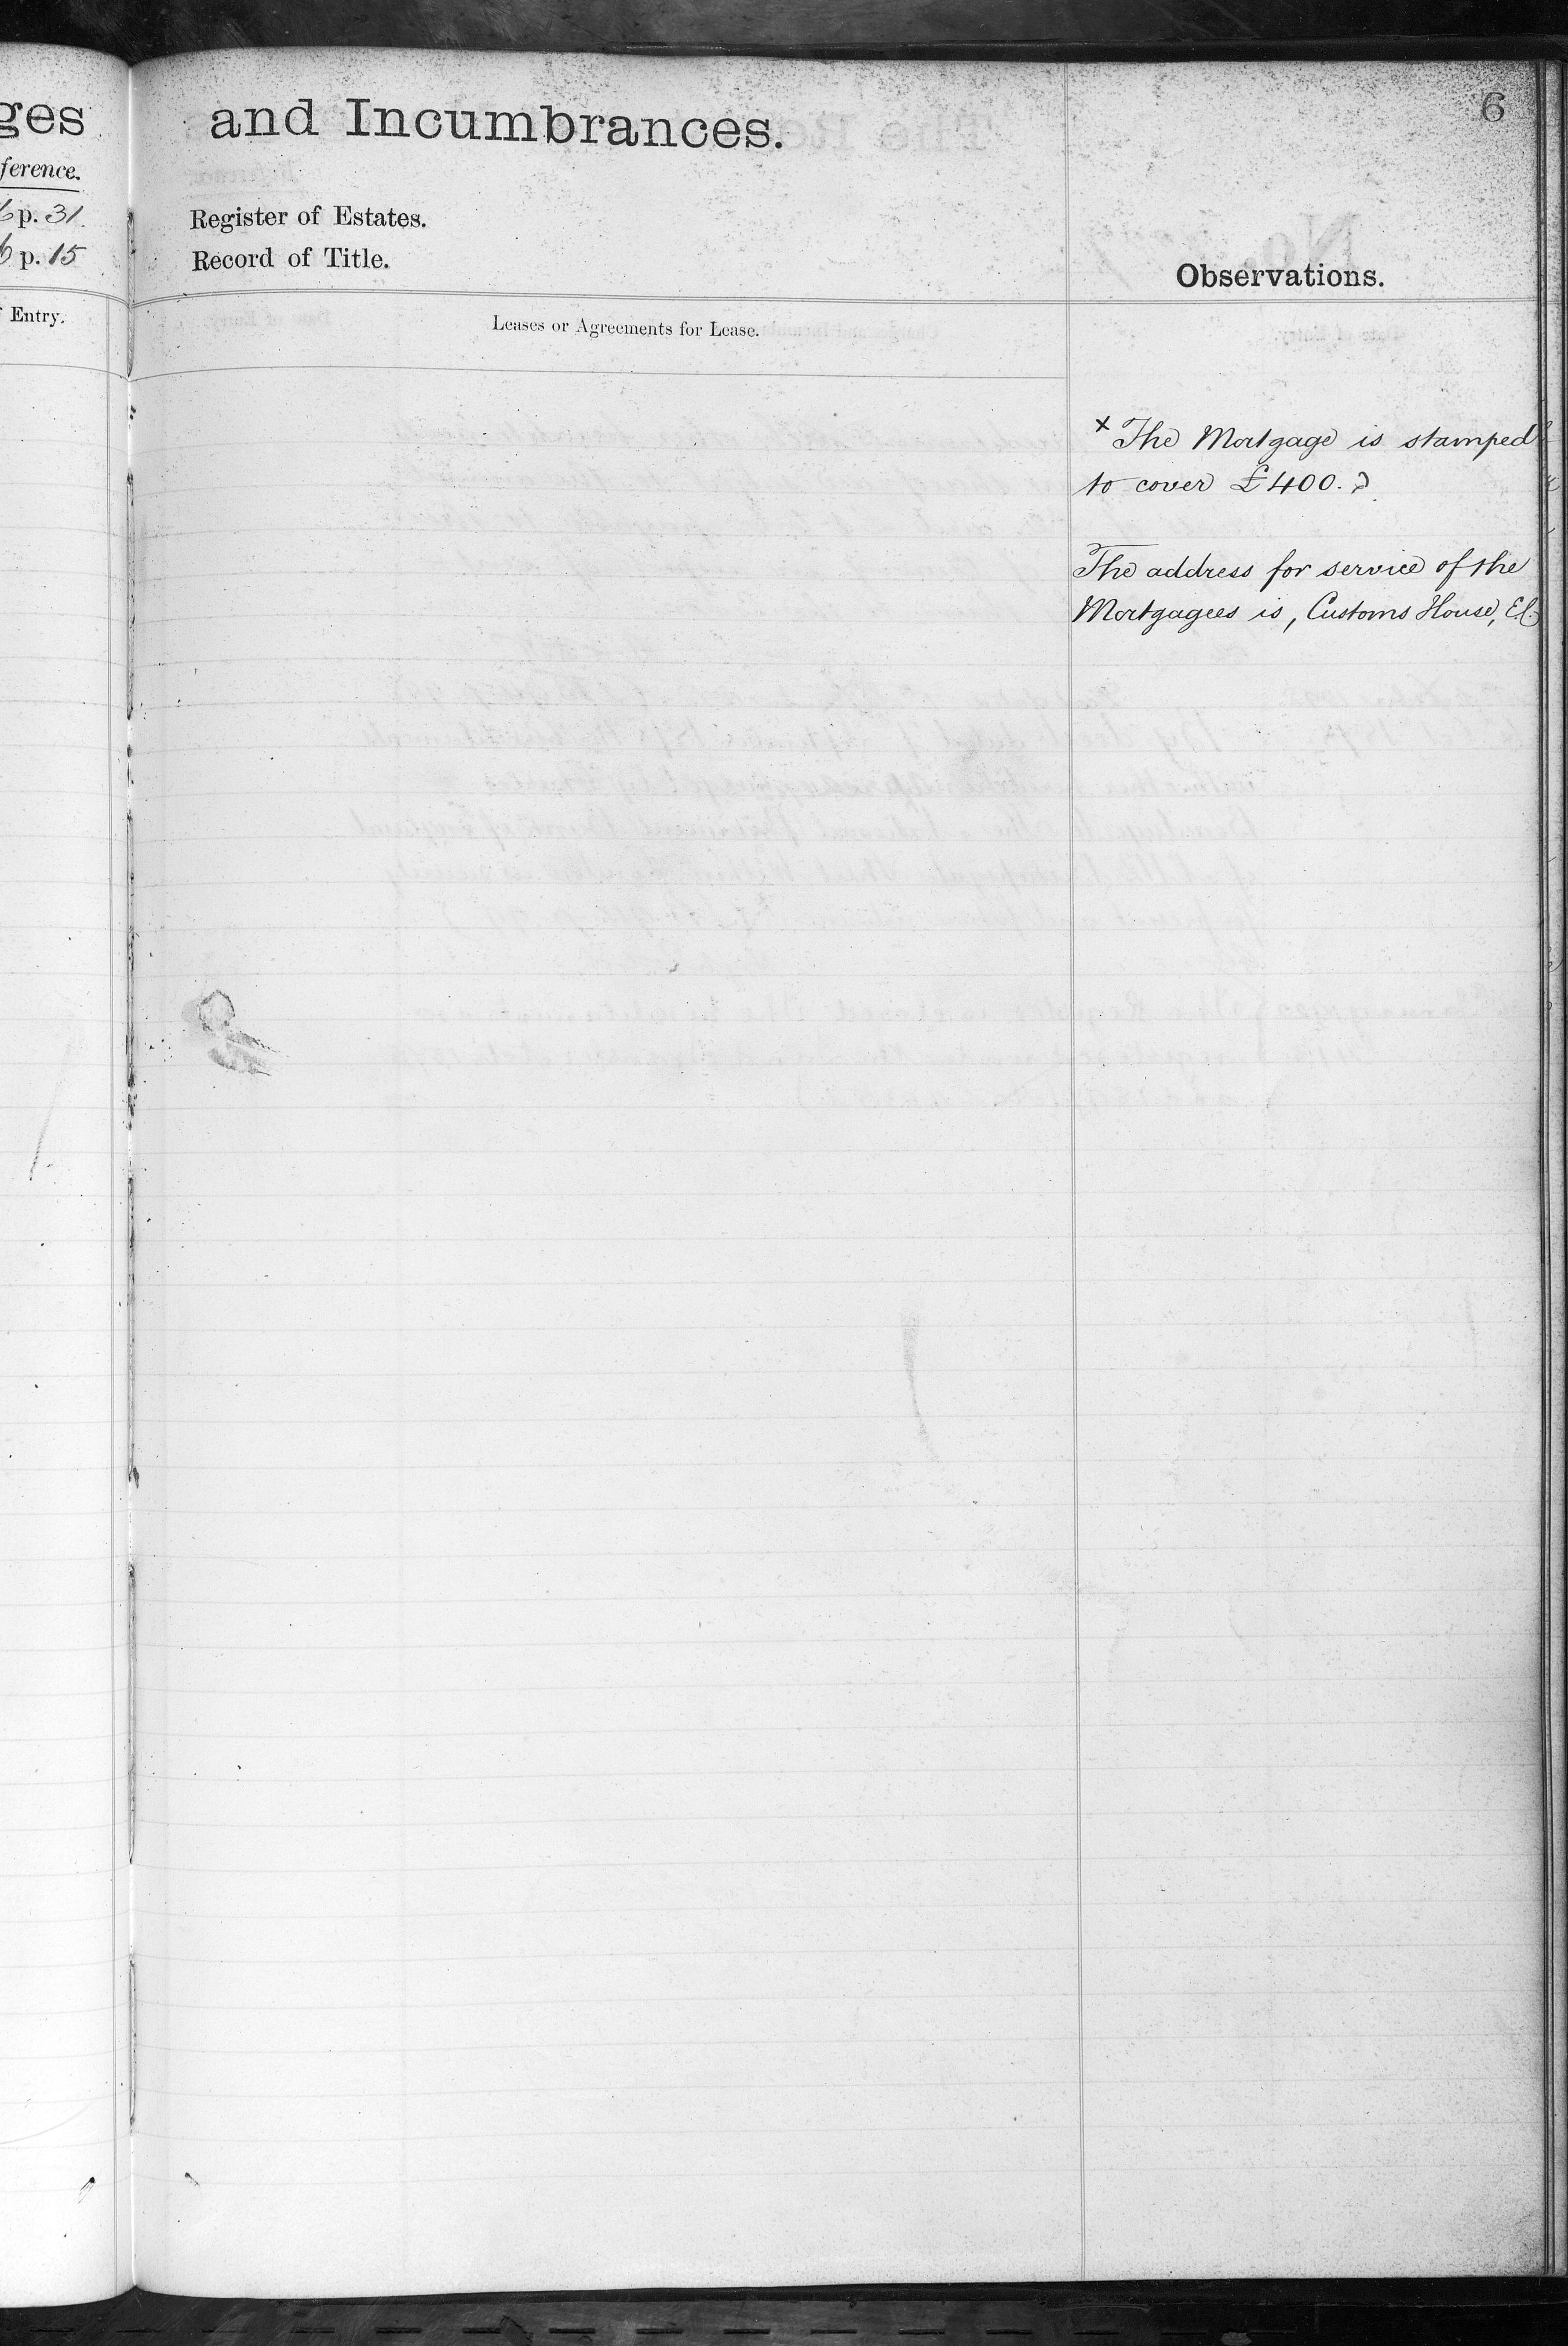 ges
ference.
p. 31.
p. 15
Entry.
and Incumbrances.
6
Register of Estates.
Record of Title.
Observations.
Leases or Agreements for Lease.
x The Mortgage is stamped
to cover £400.
The address for service of the
Mortgagees is, Customs House, E.C.